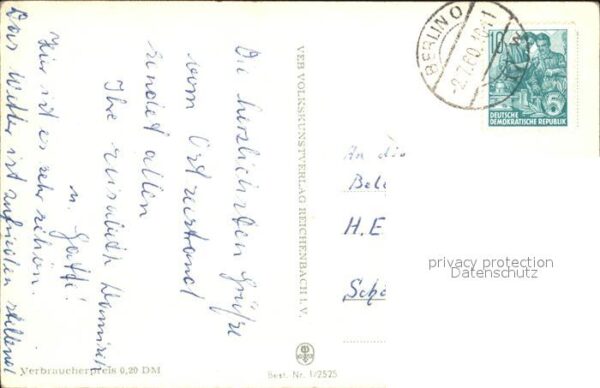 Die herzlichsten Grüße
vom Ostzestrand
sendet allen
Ihre
u. Gatte!
Hier ist es sehr schön.
Das Wetter ist zufrieden stellend
VEB VOLKSKUNSTVERLAG REICHENBACH I. V.
BERLIN O
10
DEUTSCHE
DEMOKRATISCHE REPUBLIK
An die
Bele
H. E
Schö
privacy protection
Datenschutz
Verbraucherpreis 0,20 DM
Best. Nr. 1/2525